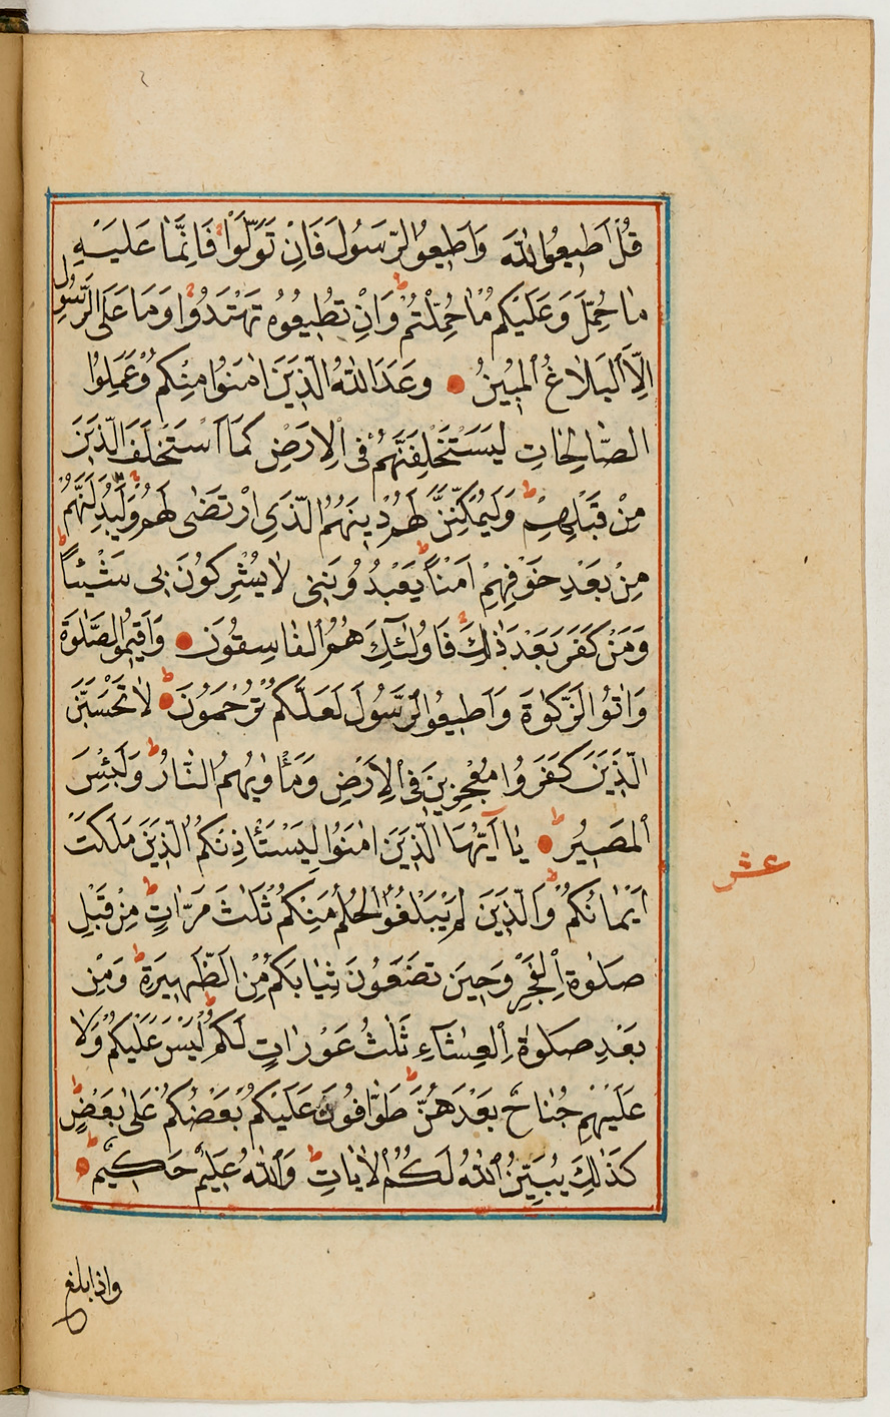 قُلْ اَطٖيعُوا اللّٰهَ وَاَطٖيعُوا الرَّسُولَ فَاِنْ تَوَلَّوْا فَاِنَّمَا عَلَيْهِ
مَا حُمِّلَ وَعَلَيْكُمْ مَا حُمِّلْتُمْ وَاِنْ تُطٖيعُوهُ تَهْتَدُوا وَمَا عَلَى الرَّسُولِ
اِلَّا الْبَلَاغُ الْمُبٖينُ وَعَدَ اللّٰهُ الَّذٖينَ اٰمَنُوا مِنْكُمْ وَعَمِلُوا
الصَّالِحَاتِ لَيَسْتَخْلِفَنَّهُمْ فِى الْاَرْضِ كَمَا اسْتَخْلَفَ الَّذٖينَ
مِنْ قَبْلِهِمْ وَلَيُمَكِّنَنَّ لَهُمْ دٖينَهُمُ الَّذِى ارْتَضٰى لَهُمْ وَلَيُبَدِّلَنَّهُمْ
مِنْ بَعْدِ خَوْفِهِمْ اَمْنًا يَعْبُدُونَنٖى لَا يُشْرِكُونَ بٖى شَيْـًٔا
وَمَنْ كَفَرَ بَعْدَ ذٰلِكَ فَاُولٰئِكَ هُمُ الْفَاسِقُونَ وَاَقٖيمُوا الصَّلٰوةَ
وَاٰتُوا الزَّكٰوةَ وَاَطٖيعُوا الرَّسُولَ لَعَلَّكُمْ تُرْحَمُونَ لَا تَحْسَبَنَّ
الَّذٖينَ كَفَرُوا مُعْجِزٖينَ فِى الْاَرْضِ وَمَاْوٰيهُمُ النَّارُ وَلَبِئْسَ
الْمَصٖيرُ يَا اَيُّهَا الَّذٖينَ اٰمَنُوا لِيَسْتَاْذِنْكُمُ الَّذٖينَ مَلَكَتْ
اَيْمَانُكُمْ وَالَّذٖينَ لَمْ يَبْلُغُوا الْحُلُمَ مِنْكُمْ ثَلٰثَ مَرَّاتٍ مِنْ قَبْلِ
صَلٰوةِ الْفَجْرِ وَحٖينَ تَضَعُونَ ثِيَابَكُمْ مِنَ الظَّهٖيرَةِ وَمِنْ
بَعْدِ صَلٰوةِ الْعِشَاءِ ثَلٰثُ عَوْرَاتٍ لَكُمْ لَيْسَ عَلَيْكُمْ وَلَا
عَلَيْهِمْ جُنَاحٌ بَعْدَهُنَّ طَوَّافُونَ عَلَيْكُمْ بَعْضُكُمْ عَلٰى بَعْضٍ
كَذٰلِكَ يُبَيِّنُ اللّٰهُ لَكُمُ الْاٰيَاتِ وَاللّٰهُ عَلٖيمٌ حَكٖيمٌ
عشر
واذا بلغ